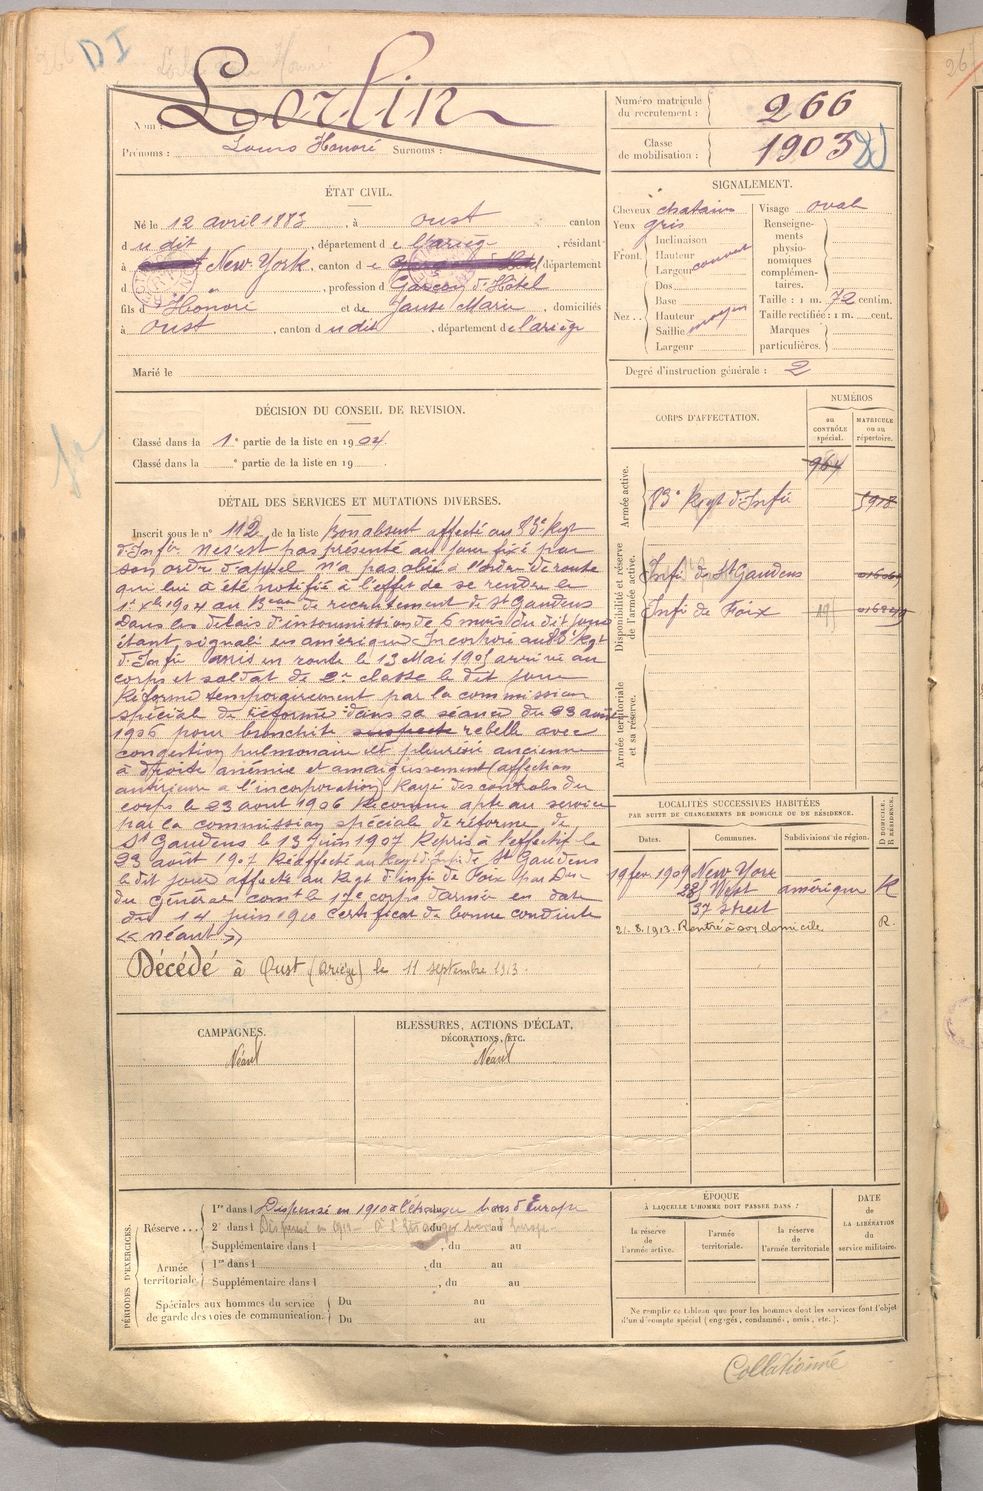 D I
Nom : Lorlin
Prénoms : Louis Honoré Surnoms :
Numéro matricule du recrutement : 266
Classe de mobilisation : 1903
ÉTAT CIVIL.
Né le 12 avril 1883, à Oust canton
d u dit, département d e l'ariège, résidant
à New-York, canton d e département
d " , profession d Garçon d'Hôtel
fils d' Honoré et de Marie, domiciliés
à Oust, canton d u dit, département de l'ariège
Marié le
SIGNALEMENT.
Cheveux chatains
Yeux gris
Front. Inclinaison
Hauteur
Largeur
Nez.. Dos
Base
Hauteur
Saillie moyen
Largeur
Visage oval
Renseignements physionomiques complémentaires.
Taille : 1 m. 72 centim.
Taille rectifiée : 1 m. cent.
Marques particulières.
Degré d'instruction générale : 2
DÉCISION DU CONSEIL DE REVISION.
Classé dans la 1e partie de la liste en 1904
Classé dans la e partie de la liste en 19
CORPS D'AFFECTATION.
NUMÉROS
au CONTRÔLE spécial.
MATRICULE ou au répertoire.
Armée active.
964
83e Regt d'Infie 5918
Disponibilité et réserve de l'armée active.
Infie de St Gaudens
Infie de Foix
Armée territoriale et sa réserve.
DÉTAIL DES SERVICES ET MUTATIONS DIVERSES.
Inscrit sous le n° 112 de la liste Bon absent affecté au 83e Regt
d'Infie. ne s'est pas présenté au jour fixé par
son ordre d'appel n'a pas obéi à l'ordre de route
qui lui a été notifié à l'effet de se rendre le
1er Xbre 1904 au Bureau de recrutement de St Gaudens
Dans les délais d'insoumission de 6 mois du dit jour
étant signalé en amérique Incorporé au 83e Regt
d'Infie mis en route le 13 Mai 1905 arrivé au
corps et soldat de 2e classe le dit jour
Réformé temporairement par la commission
spécial de réforme dans sa séance du 23 août
1906 pour bronchite suspecte rebelle avec
congestion pulmonaire et pleurésie ancienne
à droite anémie et amaigrissement (affection
antérieure à l'incorporation) Rayé des contrôles du
corps le 23 aout 1906 Reconnu apte au service
par la commission spéciale de réforme de
St Gaudens le 13 Juin 1907 Repris à l'effectif le
23 août 1907 Réaffecté au Regt d'Infie de St Gaudens
le dit jour affecté au Regt d'infie de Foix par
du général comt le 17e corps d'armée en date
du 14 juin 1910 certificat de bonne conduite
<< néant >>
Décédé à Oust (Ariège) le 11 septembre 1913.
LOCALITÉS SUCCESSIVES HABITÉES
PAR SUITE DE CHANGEMENTS DE DOMICILE OU DE RÉSIDENCE.
Dates. Communes. Subdivisions de région.
D DOMICILE. R RÉSIDENCE.
19 fev. 1909 New York
West amérique R
37 Street
21.8.1913. Rentré à son domicile R.
CAMPAGNES.
Néant
BLESSURES, ACTIONS D'ÉCLAT,
DÉCORATIONS, ETC.
Néant
PÉRIODES D'EXERCICES.
Réserve... 1re dans l Dispensé en 1910 à l'étranger hors d'Europe
2e dans l Dispensé en 1912 - à l'étranger hors d'Europe -
Supplémentaire dans l , du au
Armée territoriale. 1re dans l , du au
Supplémentaire dans l , du au
Spéciales aux hommes du service de garde des voies de communication. Du au
Du au
ÉPOQUE
À LAQUELLE L'HOMME DOIT PASSER DANS :
la réserve de l'armée active.
l'armée territoriale.
la réserve de l'armée territoriale
DATE
de
LA LIBÉRATION
du
service militaire.
Ne remplir ce tableau que pour les hommes dont les services font l'objet
d'un décompte spécial (engagés, condamnés, omis, etc.).
Collationné